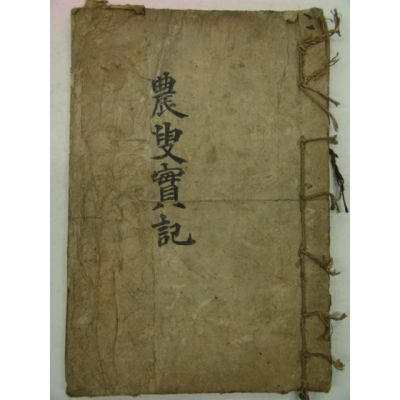 農叟實記